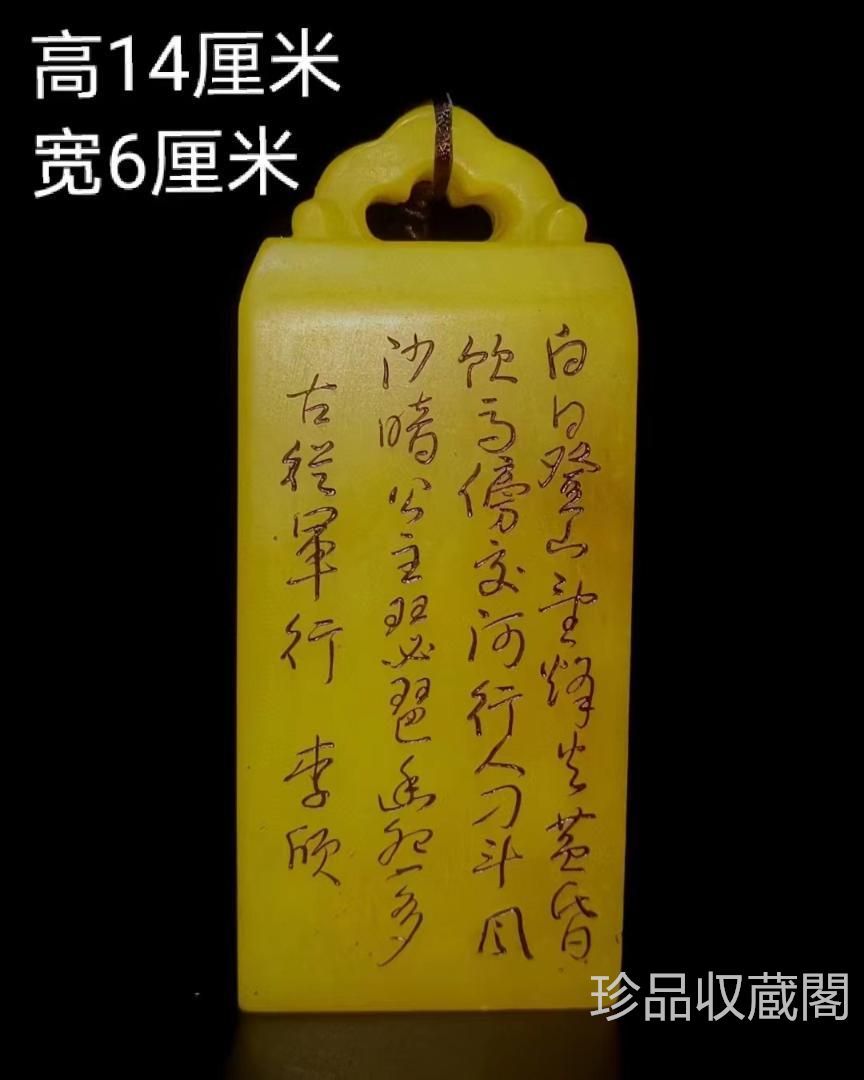 高14厘米
宽6厘米
白日登山望烽火黄昏
饮马傍交河行人刀斗风
沙暗公主琵琶幽怨多
古从军行 李欣
珍品収蔵閣